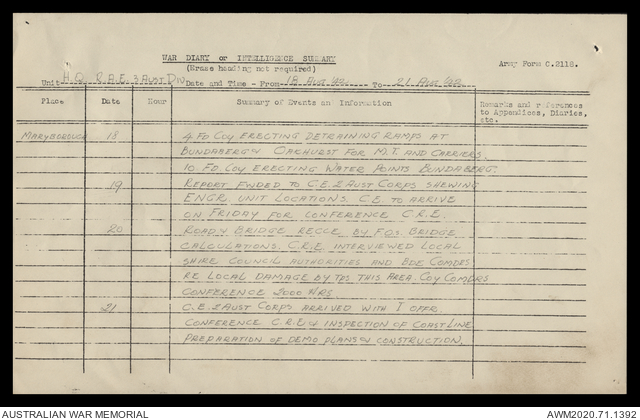 WAR DIARY or INTELLIGENCE SUMMARY
(Erase heading not required) Army Form C.2118.
Unit H.Q. R.A.E. 3 AUST DIV Date and Time - From 18 AUG '42 To 21 AUG '42
Place Date Hour Summary of Events and Information Remarks and references to Appendices, Diaries, etc.
MARYBOROUGH 18 4 FD COY ERECTING DETRAINING RAMPS AT
BUNDABERG & OAKHURST FOR M.T. AND CARRIERS.
10 FD. COY ERECTING WATER POINTS BUNDABERG.
19 REPORT FWDED TO C.E. 2 AUST CORPS SHEWING
ENGR. UNIT LOCATIONS. C.E. TO ARRIVE
ON FRIDAY FOR CONFERENCE C.R.E.
20 ROAD & BRIDGE RECCE BY FOS. BRIDGE
CALCULATIONS. C.R.E. INTERVIEWED LOCAL
SHIRE COUNCIL AUTHORITIES AND BDE COMDES
RE LOCAL DAMAGE BY TPS THIS AREA. COY COMDRS
CONFERENCE 2000 HRS
21 C.E. 2 AUST CORPS ARRIVED WITH I OFFR.
CONFERENCE C.R.E & INSPECTION OF COAST LINE
PREPARATION OF DEMO PLANS & CONSTRUCTION.
AUSTRALIAN WAR MEMORIAL AWM2020.71.1392